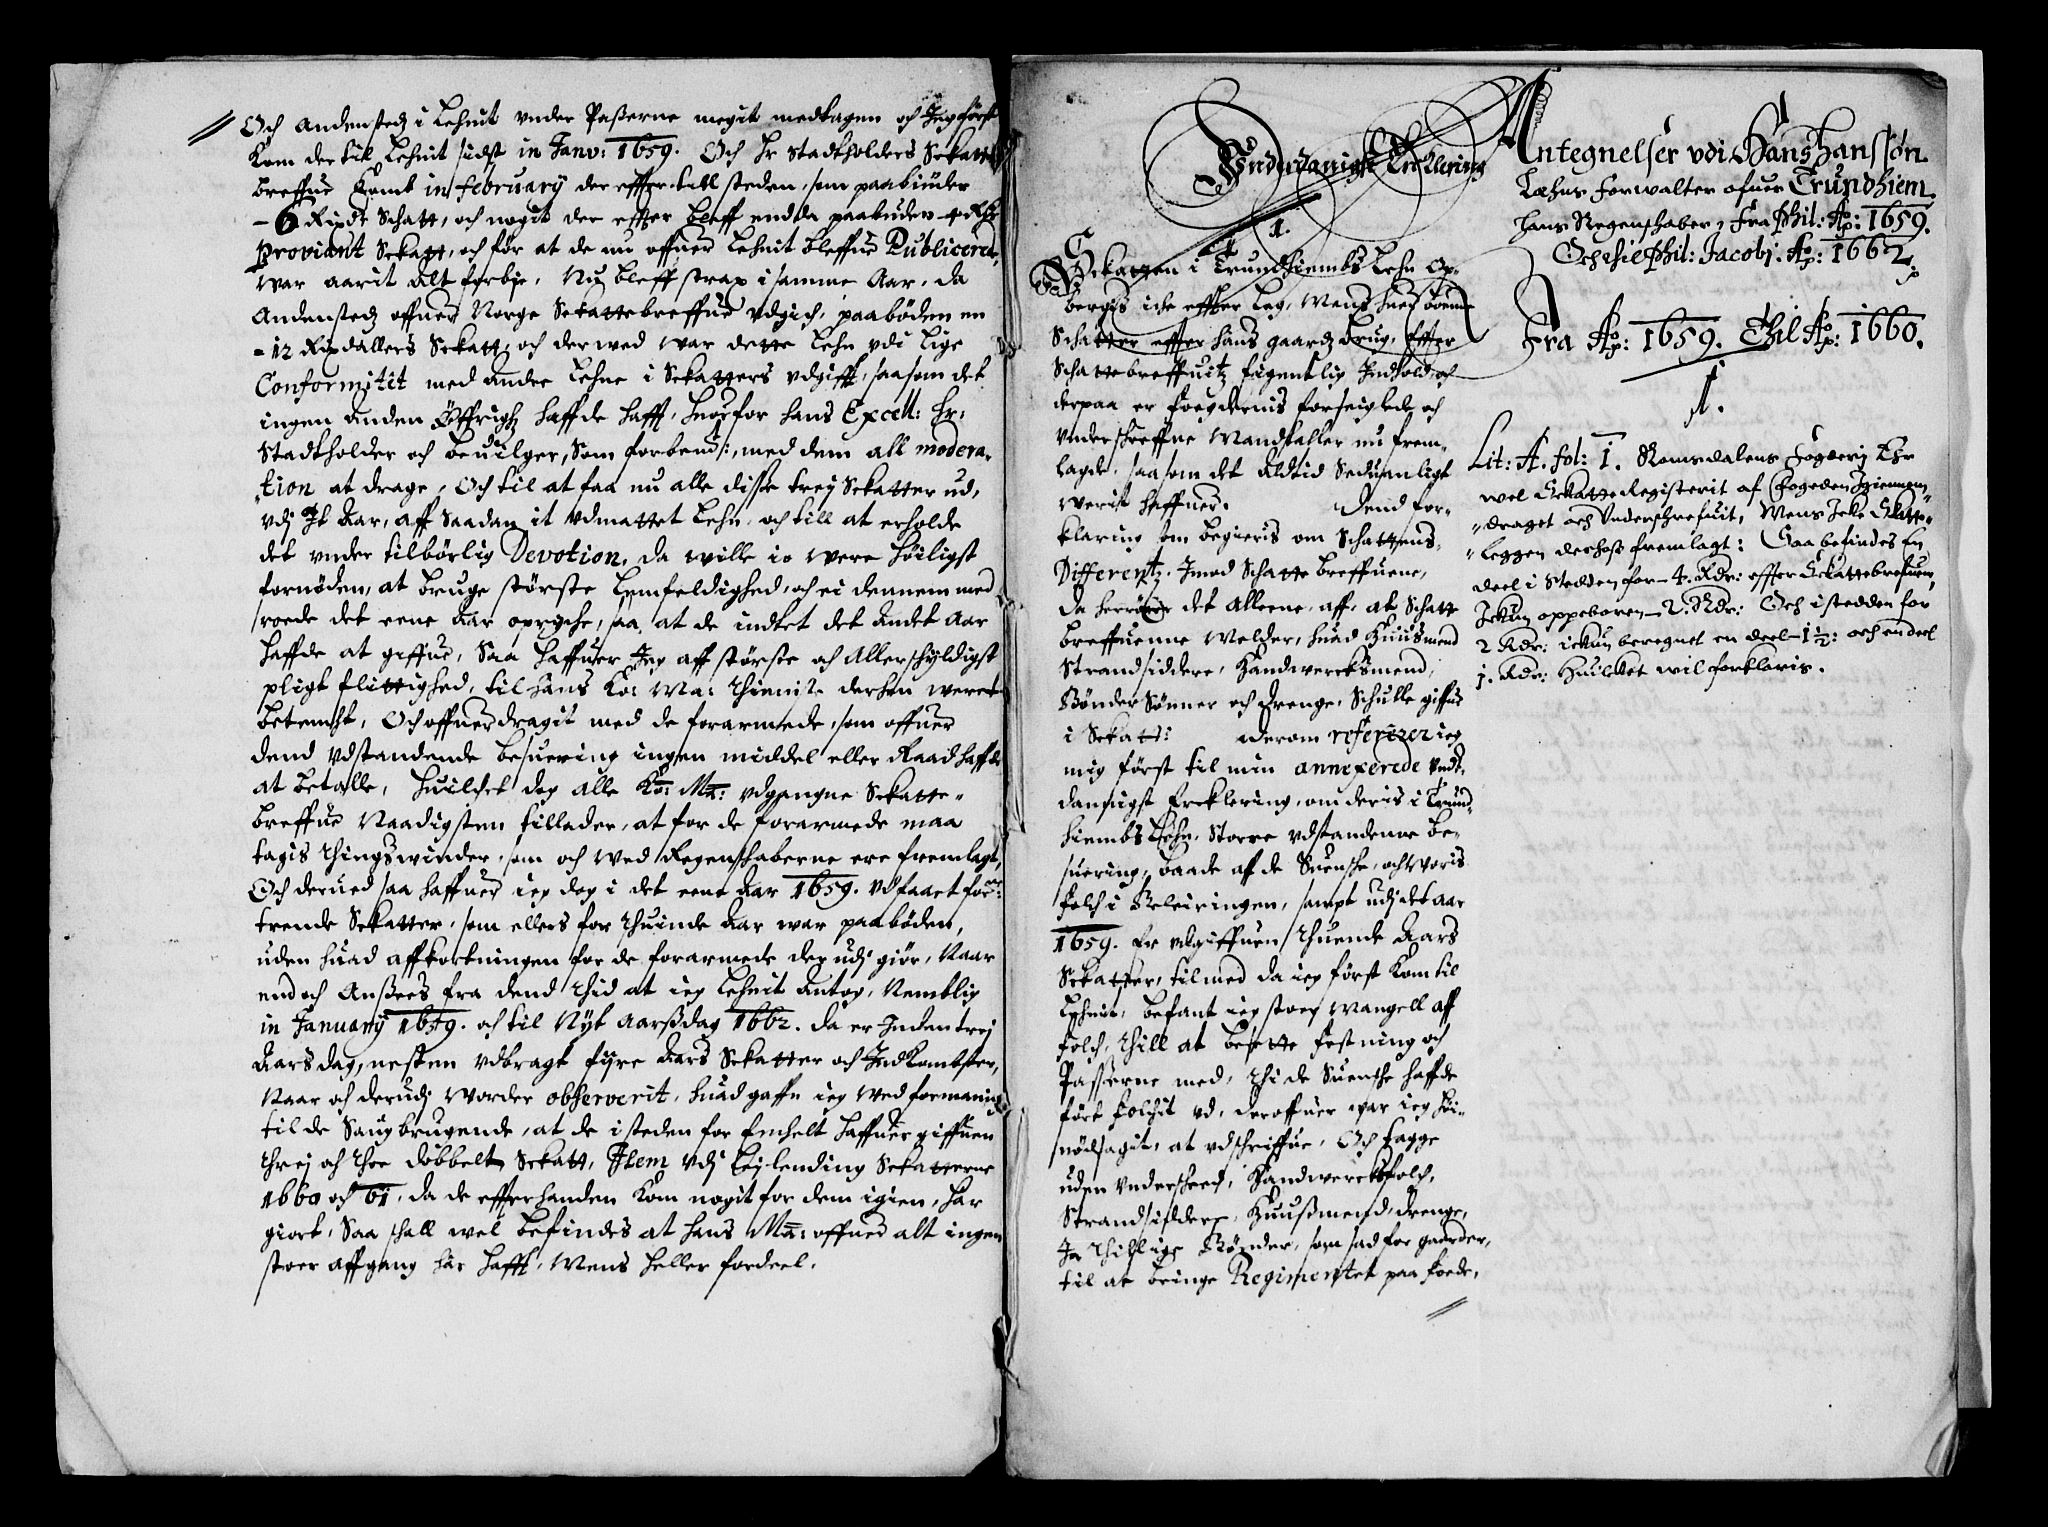 Och andensteds i Lehnit vnder Paßerne megit medtagen och Jeg först
Kom der til Lehnit sidst in Janv: 1659. Och Hr Stadtholders Skatte
breffue Komb in February der effter till steden, som paabiuder
- 6 Rixdr Schatt, och nogit der effter bleff endda paabuden 4 Rdr
Proviant Skatt, och för at de nu offuer Lehnit bleffue Publicered,
war aarit alt forbje, Nu bleff strax i samme Aar, da
Andensteds offuer Norge Skattebreffue vdgich, paabøden en
- 12 Rixdallers Skatt, och derwed war dette Lehn vdi lige
Conformitet med andre Lehne i Skatters vdgifft, saasom det
ingen anden Øffrighz haffde hafft, huorfor hans Excell: Hr:
Stadtholder och beuilger, som forbemt:, med dem all modera-
tion at drage, Och til at faa nu alle disse trej Skatter ud,
vdj It Aar, aff saadan it vdmattet Lehn, och till at erholde
det vnder tilbörlig Devotion, da wille io were höiligst
fornöden, at bruge störste Lemfeldighed, och ei dennem med
roede det eene Aar opryche, saa at de indtet det andet Aar
haffde at giffue, Saa haffuer Jeg aff störste och Allerschyldigst
pligt flittighed, til hans Ko: Ma: thieniste derhen werret
betencht, Och offuerdragit med de forarmede, som offuer
dend vdstandende besuering ingen middel eller Raad haffde
at betalle, huilchet dog alle Ko: Ma: vdgangne Skatte-
breffue Naadigsten tillader, at for de forarmede maa
tagis thingswinder, som och wed Regenschaberne ere fremlagt,
Och derued saa haffuer ieg dog i det eene Aar 1659. vdfaaet for-
trende Skatter, som ellers for thuinde Aar war paabøden,
uden huad affkortningen for de forarmede derudj giör, Naar
end och Ansees fra dend thid at ieg Lehnit Antog, Nemblig
in January 1659. och til Nyt aarsdag 1662. da er Inden trej
Aars dag, nesten vdbragt fyre Aars Skatter och Indkombster,
Naar och derudj worder observerit, huad gaffn ieg wed formaning
til de Saugbrugende, at de i steden for Enchelt haffuer giffuen
threj och thoe dobbelt Skatt, Item vdj Leilending Skatterne
1660 och 61, da de effterhanden Kom nogit for dem igien, har
giort, Saa schall wel befindes at hans Ma: offuer alt ingen
stoer affgang här hafft, Mens heller fordeel.
Vnderdanigst Erklering
1.
Skatten i Trundhiembs Lehn Op-
bergis icke effter Leg, Mens huer bonde
Schatter effter hans gaardz brug, Effter
Schattebreffuitz Eigentlig Indhold, och
derpaa er foegdernis forseiglede och
vnderschreffne Mandtaller nu frem-
lagde, saasom det Altid Seduanligt
werit haffuer. Dend for-
klaring som begieris om Schattens
Differentz. Imod Schatte breffuene,
da herrörer det Alleene, aff, at Schatte
breffuenne Melder, huad Huusmend
Strandsiddere, Handwercksmend,
Bønder Sønner och drenge, Schulle giffue
i Skatt: derom referizer ieg
mig först til min annexerede Undr-
danigst Ercklering, om deris i Trund-
hiembs Lehn, Storre vdstandenne be-
suering, baade af de Suensche, och Woris
folch i Beleiringen, sampt udj det Aar
1659. Er vdgiffuen thuende Aars
Skatter, tilmed da ieg först Kom til
Lehnit, befant ieg stoer Mangell aff
folch, thill at besette Festning och
Passerne med, thi de Suensche haffde
fört folchit vd, deroffuer war ieg höi-
nödsagit, at vdschriffue, Och tagge
uden vnderscheed, Handwercksfolch,
Strandsiddere, Huußmend, drenge,
Ja thillige Bönder, som sad for gaarder,
til at bringe Regimentet paa foede,
Antegnelser vdi Hans Hanssøn
Læhns forwalter ofuer Trundhiem
hans Regenschaber, Fra Phil: Ao: 1659.
Och thil Phil: Jacobj. Ao: 1662.
Fra Ao: 1659. Thil Ao: 1660.
1.
Lit: A. fol: 1. Romsdalens Fogderj Er
wel Skatte Registerit af Fogeden Igiennem
draget och Underschrefuit, Mens Icke Skatte-
Leggen derhoß fremlagt: Saa befindes En
deel i Stedden for - 4. Rdr: effter Skattebrefuene,
Ickun oppeboren - 2. Rdr: Och i stedden for
2 Rdr: ickun beregnet en deel - 1 1/2: och en deel
1. Rdr: Huilket wil forklaris.